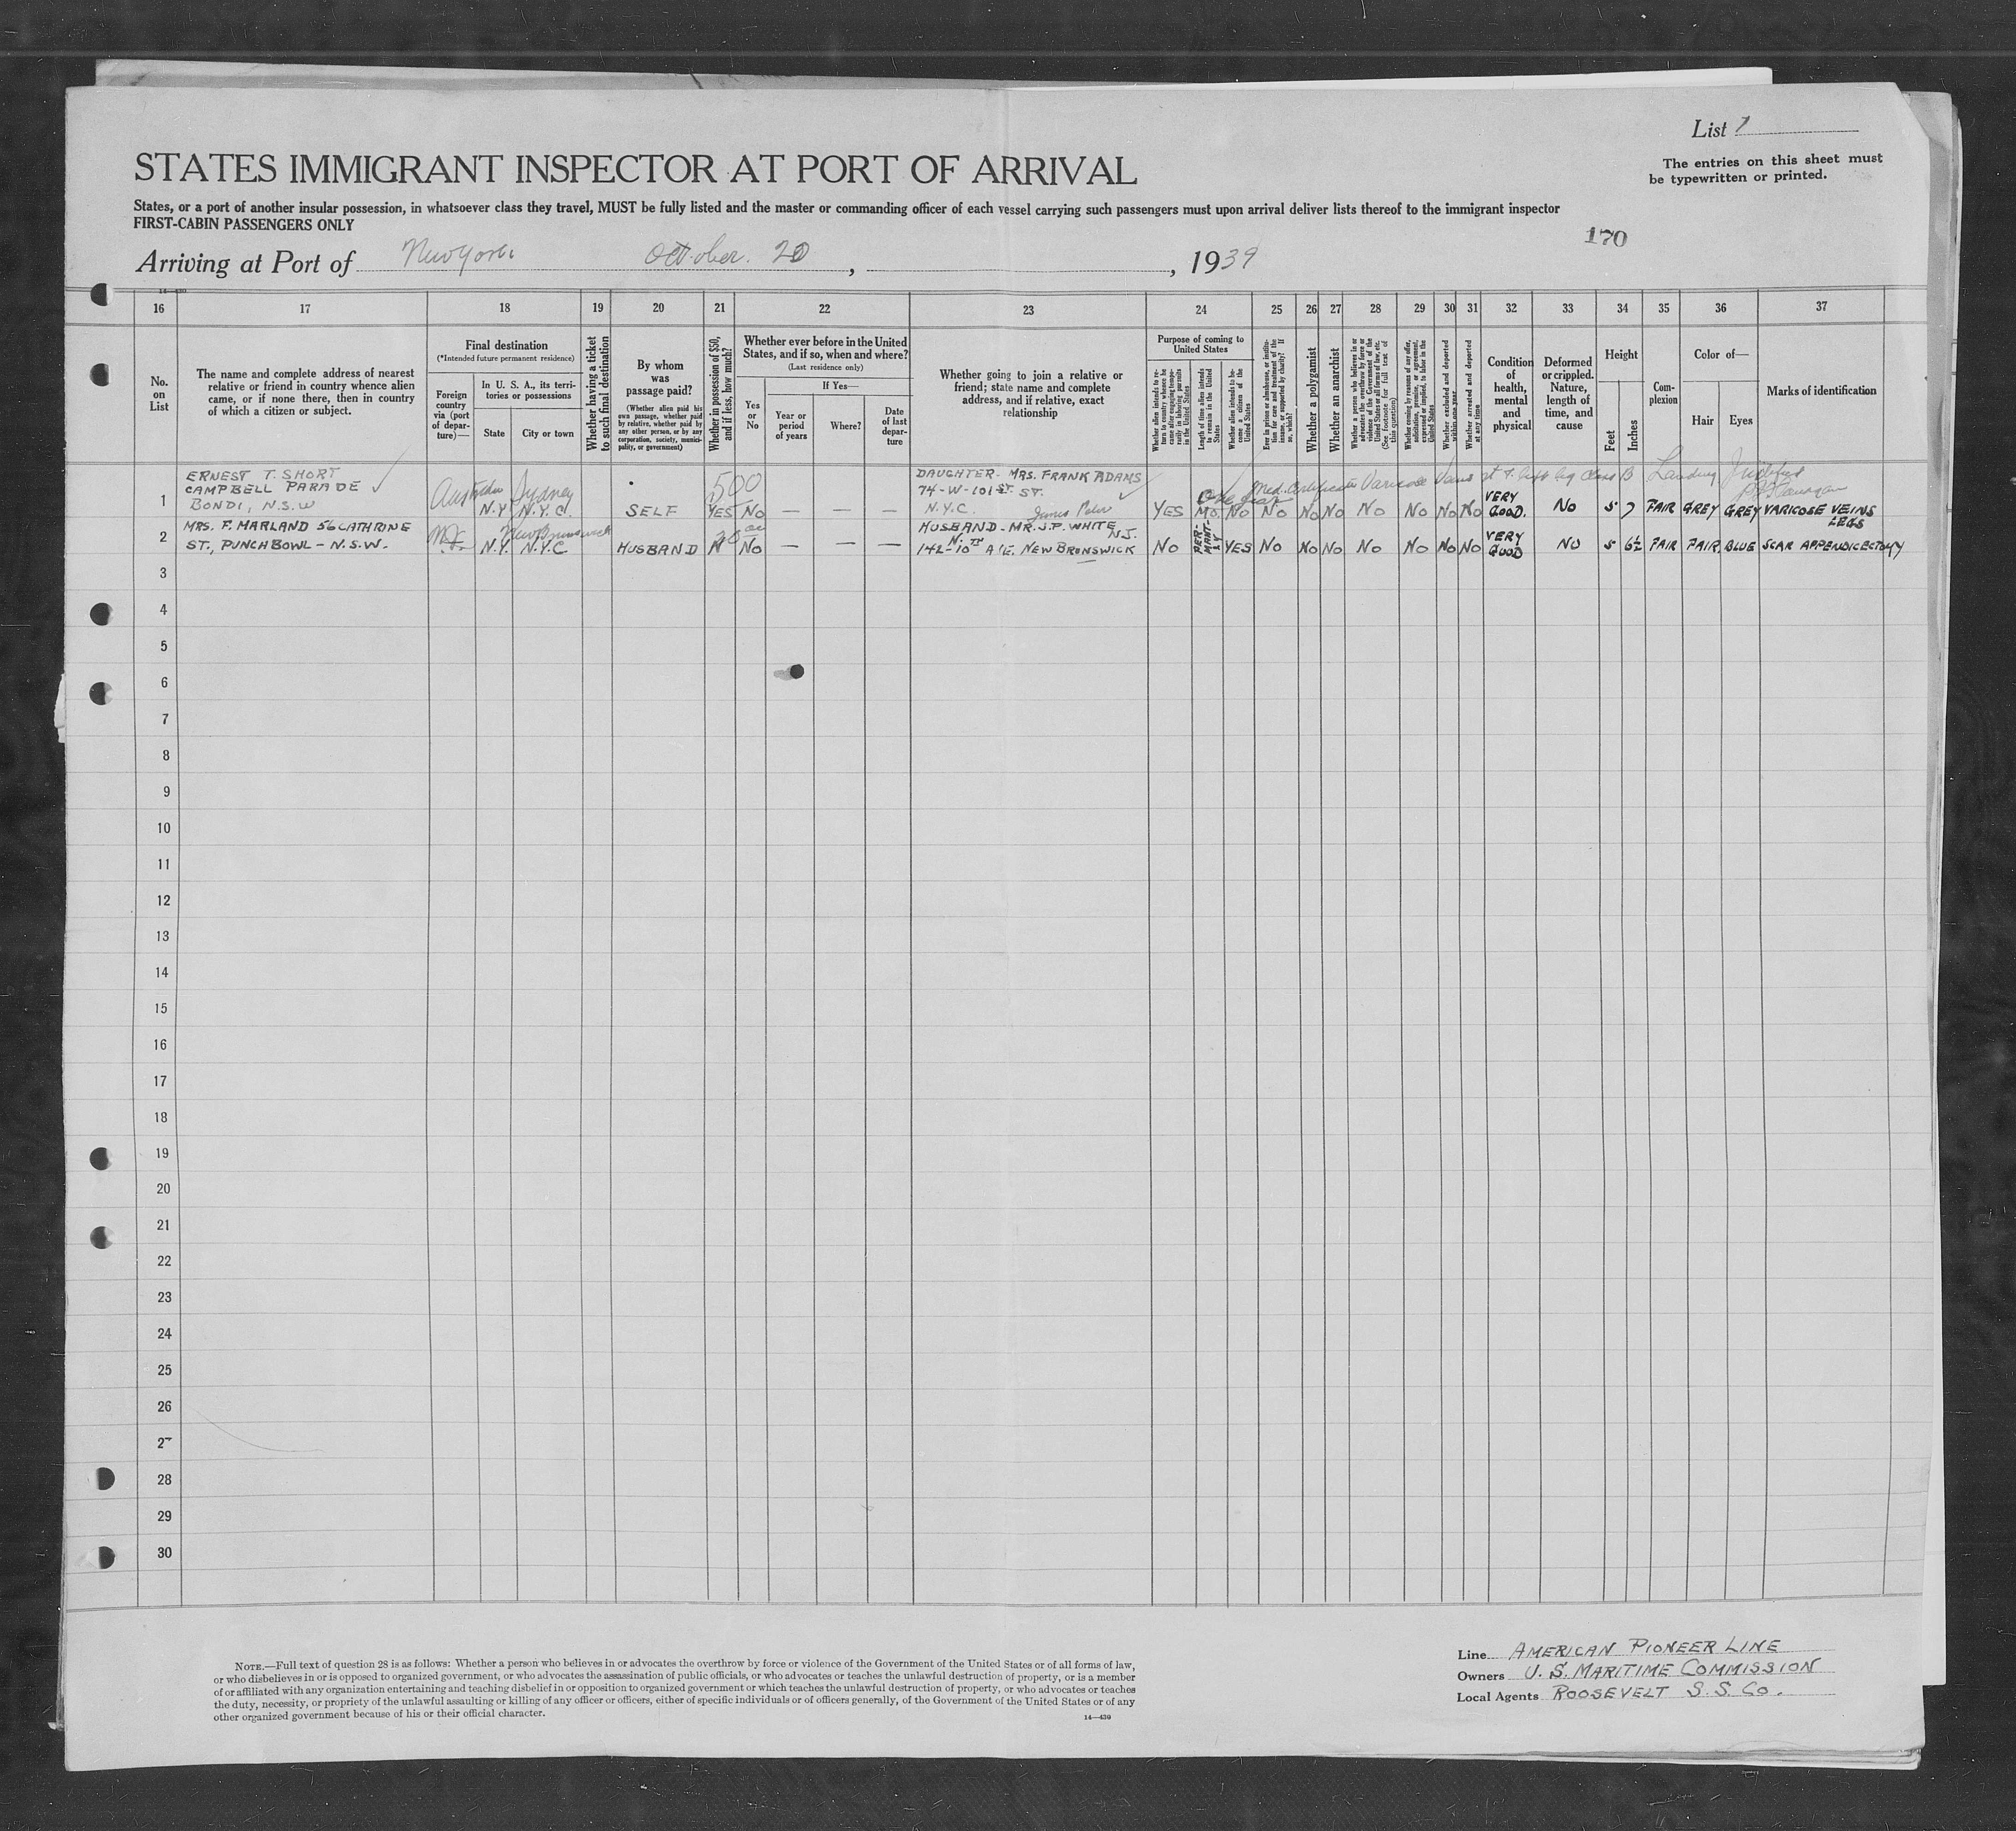 List 1
STATES IMMIGRANT INSPECTOR AT PORT OF ARRIVAL
The entries on this sheet must
be typewritten or printed.
States, or a port of another insular possession, in whatsoever class they travel, MUST be fully listed and the master or commanding officer of each vessel carrying such passengers must upon arrival deliver lists thereof to the immigrant inspector
FIRST-CABIN PASSENGERS ONLY
170
Arriving at Port of New York October 20, 1939
16 17 18 19 20 21 22 23 24 25 26 27 28 29 30 31 32 33 34 35 36 37
No. on List
The name and complete address of nearest
relative or friend in country whence alien
came, or if none there, then in country
of which a citizen or subject.
Final destination
(*Intended future permanent residence)
Foreign country via (port of departure)—
In U. S. A., its territories or possessions
State
City or town
Whether having a ticket to such final destination
By whom was passage paid?
(Whether alien paid his own passage, whether paid by relative, whether paid by any other person, or by any corporation, society, municipality, or government)
Whether in possession of $50, and if less, how much?
Whether ever before in the United States, and if so, when and where?
(Last residence only)
Yes or No
If Yes—
Year or period of years
Where?
Date of last departure
Whether going to join a relative or
friend; state name and complete
address, and if relative, exact
relationship
Purpose of coming to United States
Whether alien intends to return to country whence he came after engaging temporarily in laboring pursuits in the United States
Length of time alien intends to remain in the United States
Whether alien intends to become a citizen of the United States
Ever in prison or almshouse, or institution for care and treatment of the insane, or supported by charity? If so, which?
Whether a polygamist
Whether an anarchist
Whether a person who believes in or advocates the overthrow by force or violence of the Government of the United States or all forms of law, etc. (See footnote for full text of this question)
Whether coming by reasons of any offer, solicitation, promise, or agreement, expressed or implied, to labor in the United States
Whether excluded and deported within one year
Whether arrested and deported at any time
Condition of health, mental and physical
Deformed or crippled. Nature, length of time, and cause
Height
Feet
Inches
Complexion
Color of—
Hair
Eyes
Marks of identification
Med. Certificate Varicose Veins Left leg Class B Landing Justified
1 ERNEST T. SHORT
CAMPBELL PARADE
BONDI, N.S.W
Australia Sydney
N.Y. N.Y.C. SELF 500 YES No — — —
DAUGHTER - MRS. FRANK ADAMS
74-W-101 ST. ST.
N.Y.C.
YES One Year MO No No No No No No No No VERY GOOD. No 5 7 FAIR GREY GREY VARICOSE VEINS LEGS
2 MRS. F. MARLAND 56 CATHRINE
ST., PUNCHBOWL - N.S.W.
New Brunswick
N.Y. N.Y.C. HUSBAND No — — —
HUSBAND - MR. J. P. WHITE
142-N. 10TH AVE. NEW BRUNSWICK N.J.
No PERMANTLY YES No No No No No No No VERY GOOD NO 5 6½ FAIR FAIR BLUE SCAR APPENDICECTOMY
3
4
5
6
7
8
9
10
11
12
13
14
15
16
17
18
19
20
21
22
23
24
25
26
27
28
29
30
NOTE.—Full text of question 28 is as follows: Whether a person who believes in or advocates the overthrow by force or violence of the Government of the United States or of all forms of law,
or who disbelieves in or is opposed to organized government, or who advocates the assassination of public officials, or who advocates or teaches the unlawful destruction of property, or is a member
of or affiliated with any organization entertaining and teaching disbelief in or opposition to organized government or which teaches the unlawful destruction of property, or who advocates or teaches
the duty, necessity, or propriety of the unlawful assaulting or killing of any officer or officers, either of specific individuals or of officers generally, of the Government of the United States or of any
other organized government because of his or their official character.
14—430
Line AMERICAN PIONEER LINE
Owners U. S. MARITIME COMMISSION
Local Agents ROOSEVELT S. S. CO.